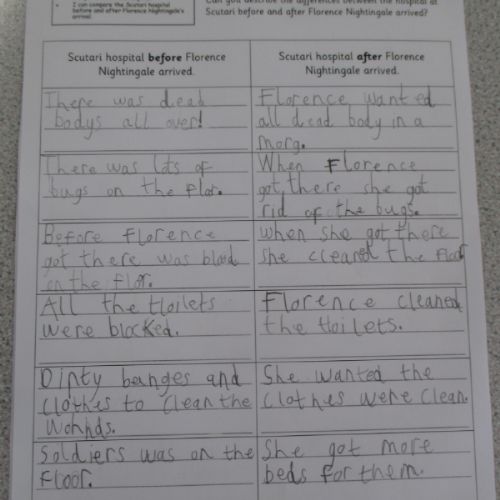 I can compare the Scutari hospital
before and after Florence Nightingale's
arrival.
Can you describe the differences between the hospital at
Scutari before and after Florence Nightingale arrived?
Scutari hospital before Florence
Nightingale arrived.
Scutari hospital after Florence
Nightingale arrived.
There was dead
bodys all over!
Florence wanted
all dead body in a
morg.
There was lots of
bugs on the flor.
When Florence
got there she got
rid of the bugs.
Before Florence
got there was blood
on the flor.
when she got there
she cleared the floor
All the tloilets
were blocked.
Florence cleaned
the tloilets.
Dirty banges and
clothes to clean the
wonnds.
She wanted the
clothes were clean.
Soldiers was on the
floor.
She got more
beds for them.